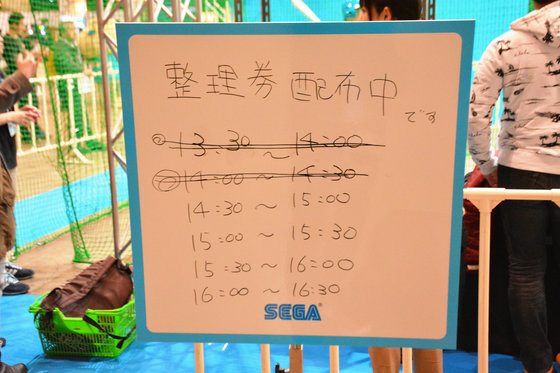 整理券 配布中
です
13:30 ~ 14:00
14:00 ~ 14:30
14:30 ~ 15:00
15:00 ~ 15:30
15:30 ~ 16:00
16:00 ~ 16:30
SEGA